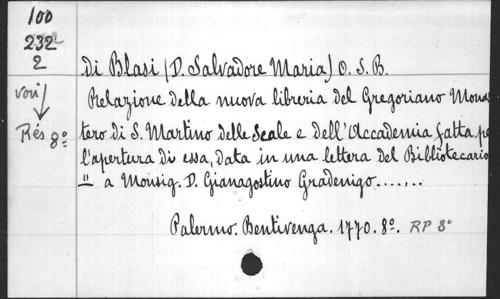 100
232
2
voir
Rés 8º
di Blasi (D. Salvadore Maria) O. S. B.
Relazione della nuova libreria del Gregoriano Mona
tero di S. Martino delle Scale e dell'Accademia fatta pe
l'apertura di essa, data in una lettera del Bibliotecario
" a Monsig. D. Gianagostino Gradenigo.......
Palermo. Bentivenga. 1770. 8º. RP 8º